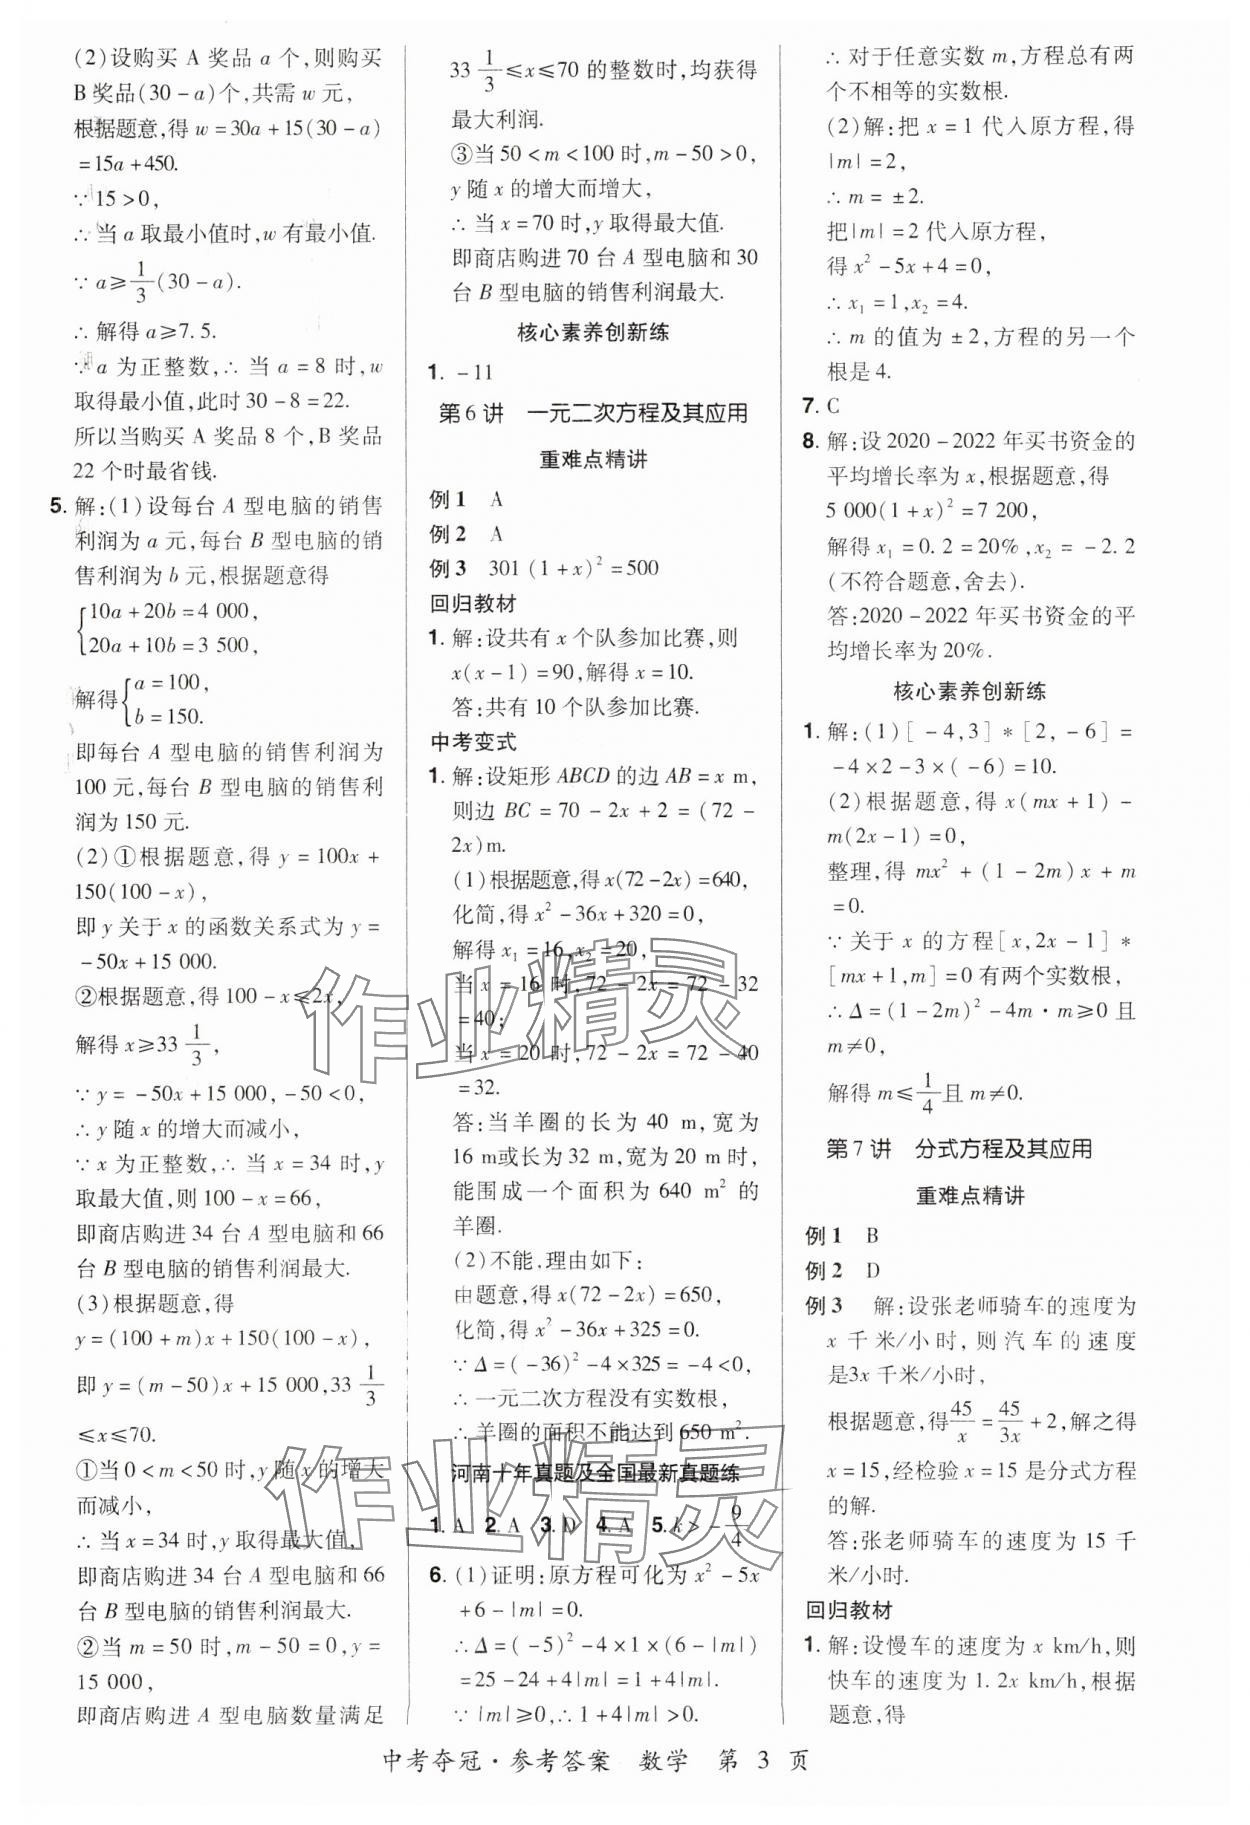 (2)设购买 A 奖品 a 个,则购买
B 奖品(30-a)个,共需 w 元,
根据题意,得 w=30a+15(30-a)
=15a+450.
∵15>0,
∴当 a 取最小值时,w 有最小值.
∵a≥1/3(30-a).
∴解得 a≥7.5.
∵a 为正整数,∴当 a=8 时,w
取得最小值,此时 30-8=22.
所以当购买 A 奖品 8 个,B 奖品
22 个时最省钱.
5. 解:(1)设每台 A 型电脑的销售
利润为 a 元,每台 B 型电脑的销
售利润为 b 元,根据题意得
{10a+20b=4 000,
20a+10b=3 500,
解得{a=100,
b=150.
即每台 A 型电脑的销售利润为
100 元,每台 B 型电脑的销售利
润为 150 元.
(2)①根据题意,得 y=100x+
150(100-x),
即 y 关于 x 的函数关系式为 y=
-50x+15 000.
②根据题意,得 100-x≤2x,
解得 x≥33 1/3,
∵y=-50x+15 000,-50<0,
∴y 随 x 的增大而减小,
∵x 为正整数,∴当 x=34 时,y
取最大值,则 100-x=66,
即商店购进 34 台 A 型电脑和 66
台 B 型电脑的销售利润最大.
(3)根据题意,得
y=(100+m)x+150(100-x),
即 y=(m-50)x+15 000,33 1/3
≤x≤70.
①当 0<m<50 时,y 随 x 的增大
而减小,
∴当 x=34 时,y 取得最大值,
即商店购进 34 台 A 型电脑和 66
台 B 型电脑的销售利润最大.
②当 m=50 时,m-50=0,y=
15 000,
即商店购进 A 型电脑数量满足
33 1/3≤x≤70 的整数时,均获得
最大利润.
③当 50<m<100 时,m-50>0,
y 随 x 的增大而增大,
∴当 x=70 时,y 取得最大值.
即商店购进 70 台 A 型电脑和 30
台 B 型电脑的销售利润最大.
核心素养创新练
1. -11
第 6 讲 一元二次方程及其应用
重难点精讲
例 1 A
例 2 A
例 3 301(1+x)²=500
回归教材
1. 解:设共有 x 个队参加比赛,则
x(x-1)=90,解得 x=10.
答:共有 10 个队参加比赛.
中考变式
1. 解:设矩形 ABCD 的边 AB=x m,
则边 BC=70-2x+2=(72-
2x)m.
(1)根据题意,得 x(72-2x)=640,
化简,得 x²-36x+320=0,
解得 x₁=16,x₂=20,
当 x=16 时,72-2x=72-32
=40;
当 x=20 时,72-2x=72-40
=32.
答:当羊圈的长为 40 m,宽为
16 m或长为 32 m,宽为 20 m 时,
能围成一个面积为 640 m² 的
羊圈.
(2)不能.理由如下:
由题意,得 x(72-2x)=650,
化简,得 x²-36x+325=0.
∵Δ=(-36)²-4×325=-4<0,
∴一元二次方程没有实数根,
∴羊圈的面积不能达到 650 m².
河南十年真题及全国最新真题练
1. A 2. A 3. D 4. A 5. k>-9/4
6. (1)证明:原方程可化为 x²-5x
+6-|m|=0.
∴Δ=(-5)²-4×1×(6-|m|)
=25-24+4|m|=1+4|m|.
∵|m|≥0,∴1+4|m|>0.
∴对于任意实数 m,方程总有两
个不相等的实数根.
(2)解:把 x=1 代入原方程,得
|m|=2,
∴m=±2.
把|m|=2 代入原方程,
得 x²-5x+4=0,
∴x₁=1,x₂=4.
∴m 的值为 ±2,方程的另一个
根是 4.
7. C
8. 解:设 2020-2022 年买书资金的
平均增长率为 x,根据题意,得
5 000(1+x)²=7 200,
解得 x₁=0.2=20%,x₂=-2.2
(不符合题意,舍去).
答:2020-2022 年买书资金的平
均增长率为 20%.
核心素养创新练
1. 解:(1)[-4,3]*[2,-6]=
-4×2-3×(-6)=10.
(2)根据题意,得 x(mx+1)-
m(2x-1)=0,
整理,得 mx²+(1-2m)x+m
=0.
∵关于 x 的方程[x,2x-1]*
[mx+1,m]=0 有两个实数根,
∴Δ=(1-2m)²-4m·m≥0 且
m≠0,
解得 m≤1/4且 m≠0.
第 7 讲 分式方程及其应用
重难点精讲
例 1 B
例 2 D
例 3 解:设张老师骑车的速度为
x 千米/小时,则汽车的速度
是3x 千米/小时,
根据题意,得45/x=45/3x+2,解之得
x=15,经检验 x=15 是分式方程
的解.
答:张老师骑车的速度为 15 千
米/小时.
回归教材
1. 解:设慢车的速度为 x km/h,则
快车的速度为 1.2x km/h,根据
题意,得
中考夺冠·参考答案 数学 第 3 页
作业精灵
作业精灵